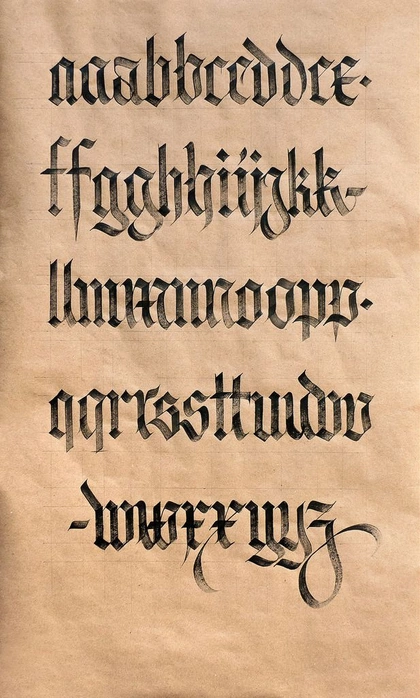 aaabbccddee·
ffgghhiijjkk-
llmmnnoopp·
qqrrsssttuuvv
-wwxxyyz